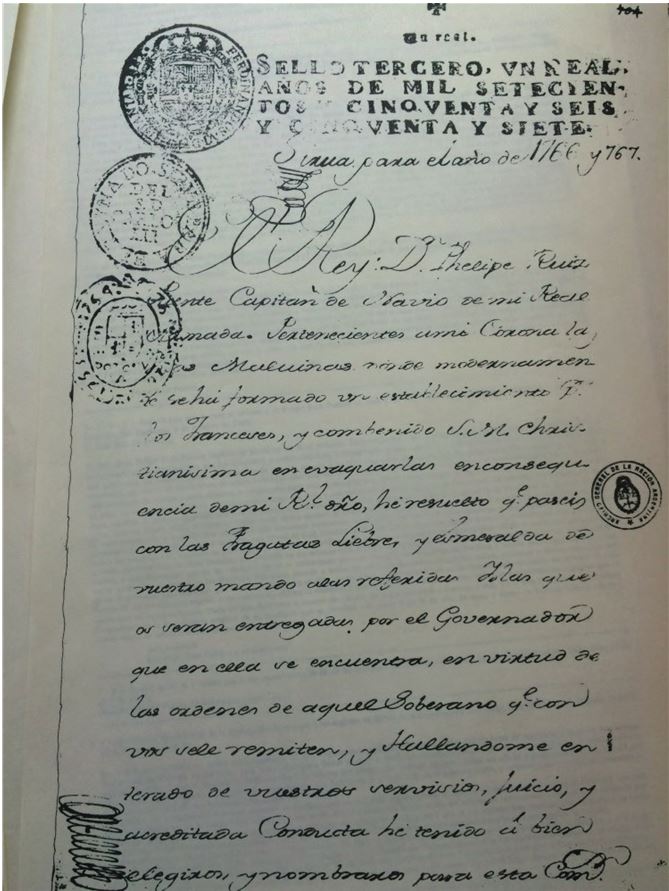 704
Un real.
SELLO TERCERO, VN REAL,
AÑOS DE MIL SETECIEN-
TOS Y CINQVENTA Y SEIS
Y CINQVENTA Y SIETE.
Sirva para el año de 1766 y 767.
El Rey: D.n Phelipe Ruiz
Puente Capitañ de Navio de mi Real
Armada. Pertenecientes ami Corona las
Yslas Maluinas donde modernamen
te sehá formado un establecimiento P.r
los Franceses, y combenido S. M. Chris-
tianisima en evaquarlas enconsequ-
encia demi R.l dño, hé resuelto q.e paseis
con las Fragatas Liebre, y Esmeralda de
vuestro mando alas referidas Yslas que
os seran entregadas por el Governadór
que en ella se encuentra, en virtud de
las ordenes de aquel Soberano q.e con
vos sele remiten, y Hallandome en
terado de vuestros servisios, juicio, y
acreditada Conducta hé tenido á bien
elegiros, y nombraros para esta Com.
ARCHIVO GENERAL DE LA NACION ARGENTINA